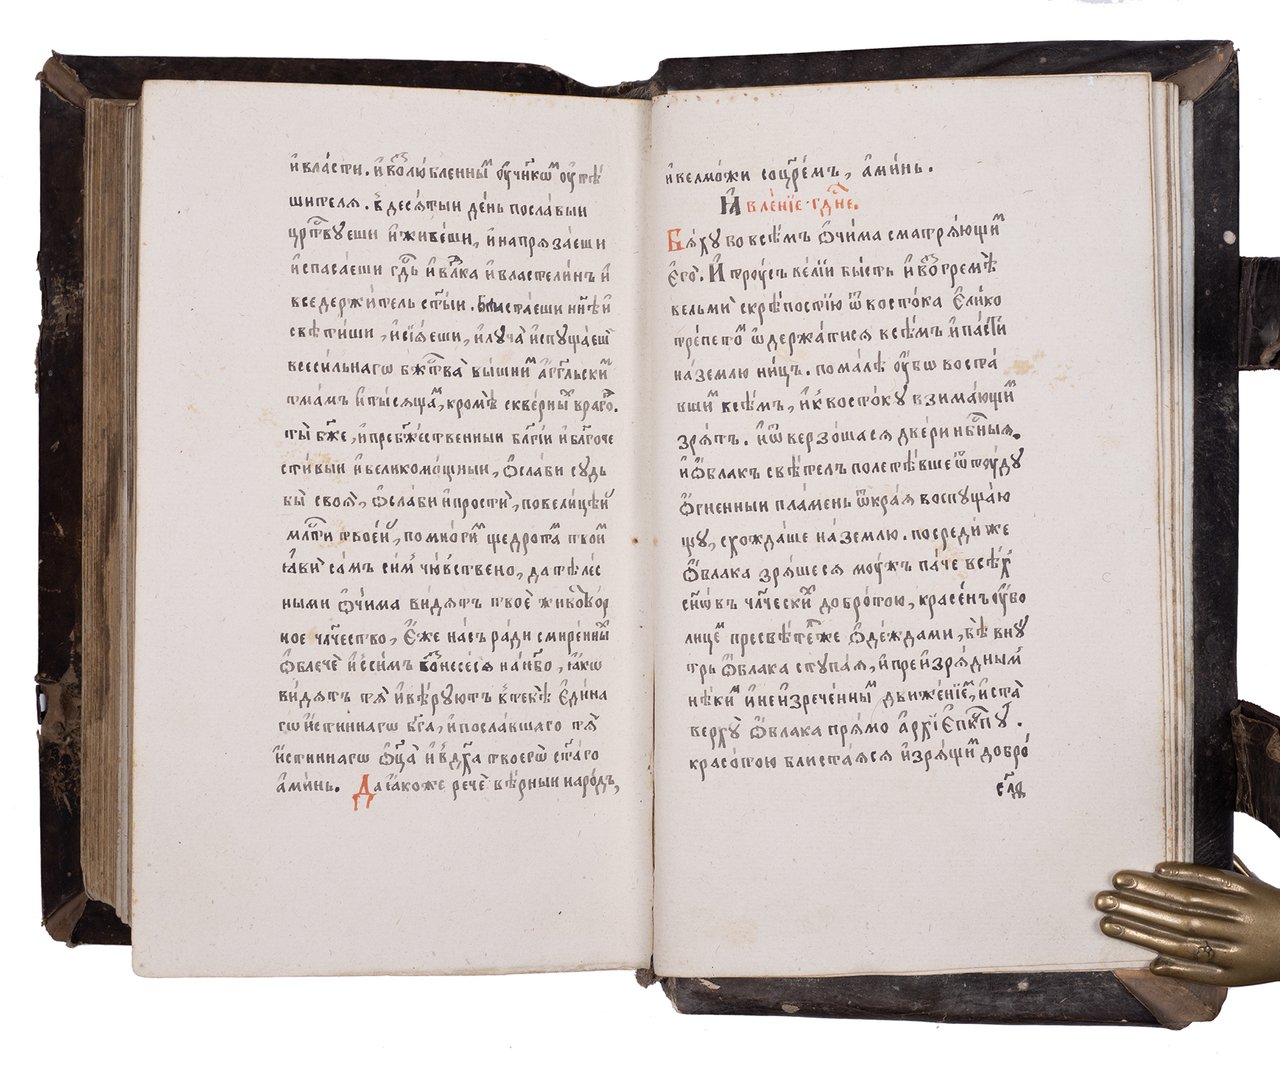 и҆ вла́сти. и҆ воⷥлю́бленныⷨ ᲂу҆чн҃кѡⷨ ᲂу҆тѣ́
шителя. в҆ деся́тыи де́нь посла́выи
црⷭ҇твуеши и҆ живе́ши, и҆ напряза́еши
и҆ спаса́еши гдⷭ҇ь и҆ влⷣка и҆ властели́нъ и҆
вседержи́тель ст҃ы́и. блиста́еши нн҃ѣ и҆
свѣ́тиши, и҆ сїѧ́еши, и҆ луча̀ и҆спуща́еш
всеси́льнагѡ бжⷭ҇тва̀ вы́шниⷨ а҆́гг҃льскиⷨ
тма́мъ и҆ ты́сящаⷨ, кро́мѣ скве́рныⷯ враго́ⷡ.
ты̀ бж҃е, и҆ пребж҃е́ственныи бл҃гі́и и҆ бл҃гоче
сти́выи и҆ великомо́щныи, ѡ҆сла́би судь
бы̀ своѧ̀, ѡ҆сла́би и҆ простѝ, повели́ цѣ́и
млⷭ҇ти твое́и, по мно́гиⷨ щедро́таⷨ твои̑
ꙗ҆ви са́мъ си́мъ чю́вствено, да тѣ́лес
ными ѻ҆чи́ма ви́дятъ твоѐ живо́твор
ное чл҃чество, е҆́же на́съ ра́ди смире́нныⷯ
ѡ҆блечѐ и҆ с си́мъ воⷥнесе́ся на нб҃о, ꙗ҆́кѡ
ви́дятъ тя̀ и҆ вѣ́руютъ в҆ тебѐ е҆ди́на
гѡ и҆́стиннагѡ бг҃а, и҆ посла́вшаго тя̀
и҆́стиннагѡ ѻ҆ц҃а̀ и҆ в҆ дх҃а твоегѡ̀ ст҃а́го
а҆ми́нь. Да ꙗ҆́коже речѐ вѣ́рныи наро́дъ,
и҆ велмо́жи со цр҃е́мъ, а҆ми́нь.
Ꙗ҆вле́нїе гдⷭ҇не.
Бя́ху бо всѣ́мъ ѻ҆чи́ма сматря́ющиⷨ
е҆го̀. и҆ тру́съ ве́лїи бы́сть и҆ воⷥгремѣ̀
вельмѝ с крѣ́постїю ѿ восто́ка е҆ли́ко
тре́петоⷨ ѡ҆держа́тися всѣ́мъ и҆ па́сти
на́ землю ни́цъ. по ма́лѣ ᲂу҆́бѡ воста́
вшиⷨ всѣ́мъ, и҆ к҆ восто́ку взима́ющиⷨ
зря́тъ. и҆ ѿверзо́шася две́ри нбⷭ҇ныя.
и҆ ѻ҆́блакъ свѣ́телъ полетѣ́вше ѿту́ду
ѻ҆́гненныи пла́мень ѿ края̀ воспуща́ю
щу, схожда́ше на́ землю. посреди́ же
ѻ҆́блака зря́шеся му́жъ па́че всѣ́хъ
сн҃ѡ́въ чл҃ческиⷯ добро́тою, кра́сенъ ᲂу҆́бо
лице́ⷨ пресвѣ́тлыⷨ же ѻ҆де́ждами, бѣ̀ вну́
трь ѻ҆́блака ступа́я, и҆ преизря́дныⷨ
нѣ́киⷨ и҆ неизрече́нныⷨ движе́нїеⷨ, и҆ ста̀
верху̀ ѻ҆́блака пря́мо а҆рхїе҆пⷭ҇кпу̀.
красо́тою блиста́яся и҆ зря́щиⷨ добро́